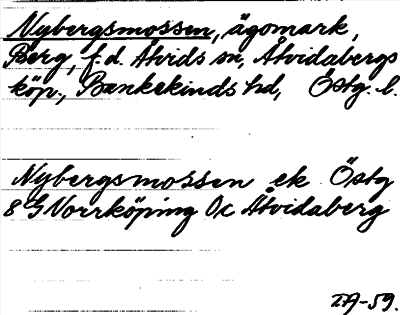 Nybergsmossen, ägomark,
Berg, f.d. Åtvids sn, Åtvidabergs
köp., Bankekinds hd, Östg. l.
Nybergsmossen ek Östg
8 G Norrköping 0c Åtvidaberg
IA-59.